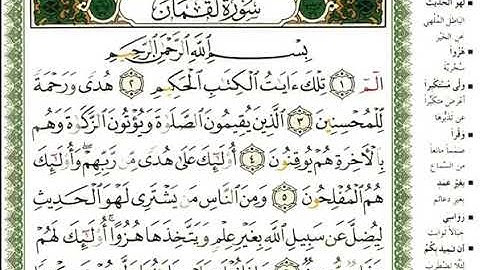 سُورَةُ لُقْمَانَ
بِسْمِ ٱللَّهِ ٱلرَّحْمَٰنِ ٱلرَّحِيمِ
الٓمٓ ١ تِلْكَ ءَايَٰتُ ٱلْكِتَٰبِ ٱلْحَكِيمِ ٢ هُدًى وَرَحْمَةً
لِّلْمُحْسِنِينَ ٣ ٱلَّذِينَ يُقِيمُونَ ٱلصَّلَوٰةَ وَيُؤْتُونَ ٱلزَّكَوٰةَ وَهُم
بِٱلْءَاخِرَةِ هُمْ يُوقِنُونَ ٤ أُو۟لَٰٓئِكَ عَلَىٰ هُدًى مِّن رَّبِّهِمْ وَأُو۟لَٰٓئِكَ
هُمُ ٱلْمُفْلِحُونَ ٥ وَمِنَ ٱلنَّاسِ مَن يَشْتَرِى لَهْوَ ٱلْحَدِيثِ
لِيُضِلَّ عَن سَبِيلِ ٱللَّهِ بِغَيْرِ عِلْمٍ وَيَتَّخِذَهَا هُزُوًا أُو۟لَٰٓئِكَ لَهُمْ
لهو الحديث
الباطل المُلهي
عن الخير
هُزُواً
سُخرية
ولّى مستكبراً
أعرض متكبّراً
عن تدبّرها
وقراً
صمماً مانعاً
من السماع
بغير عمد
بغير دعائم
رواسي
جبالاً ثوابت
أن تميد بكم
لئلا تضطرب